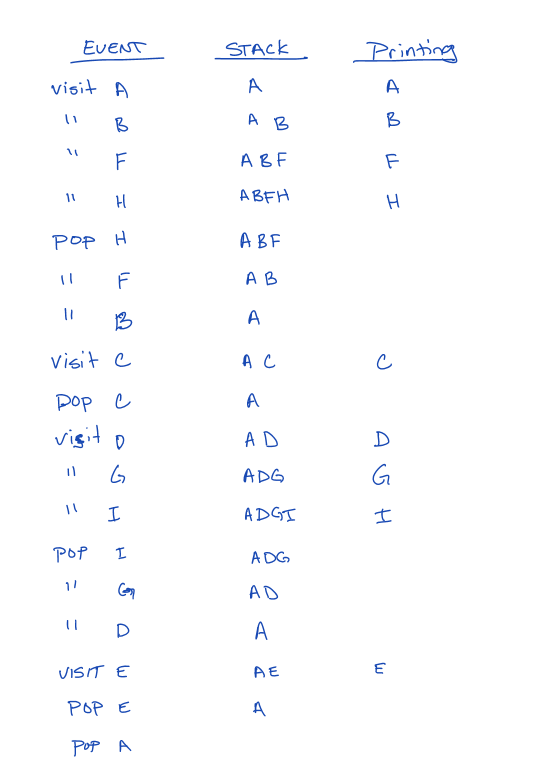 EVENT STACK Printing
visit A A A
" B A B B
" F ABF F
" H ABFH H
POP H ABF
" F AB
" B A
visit C A C C
POP C A
visit D A D D
" G ADG G
" I ADGI I
POP I ADG
" G AD
" D A
VISIT E AE E
POP E A
POP A